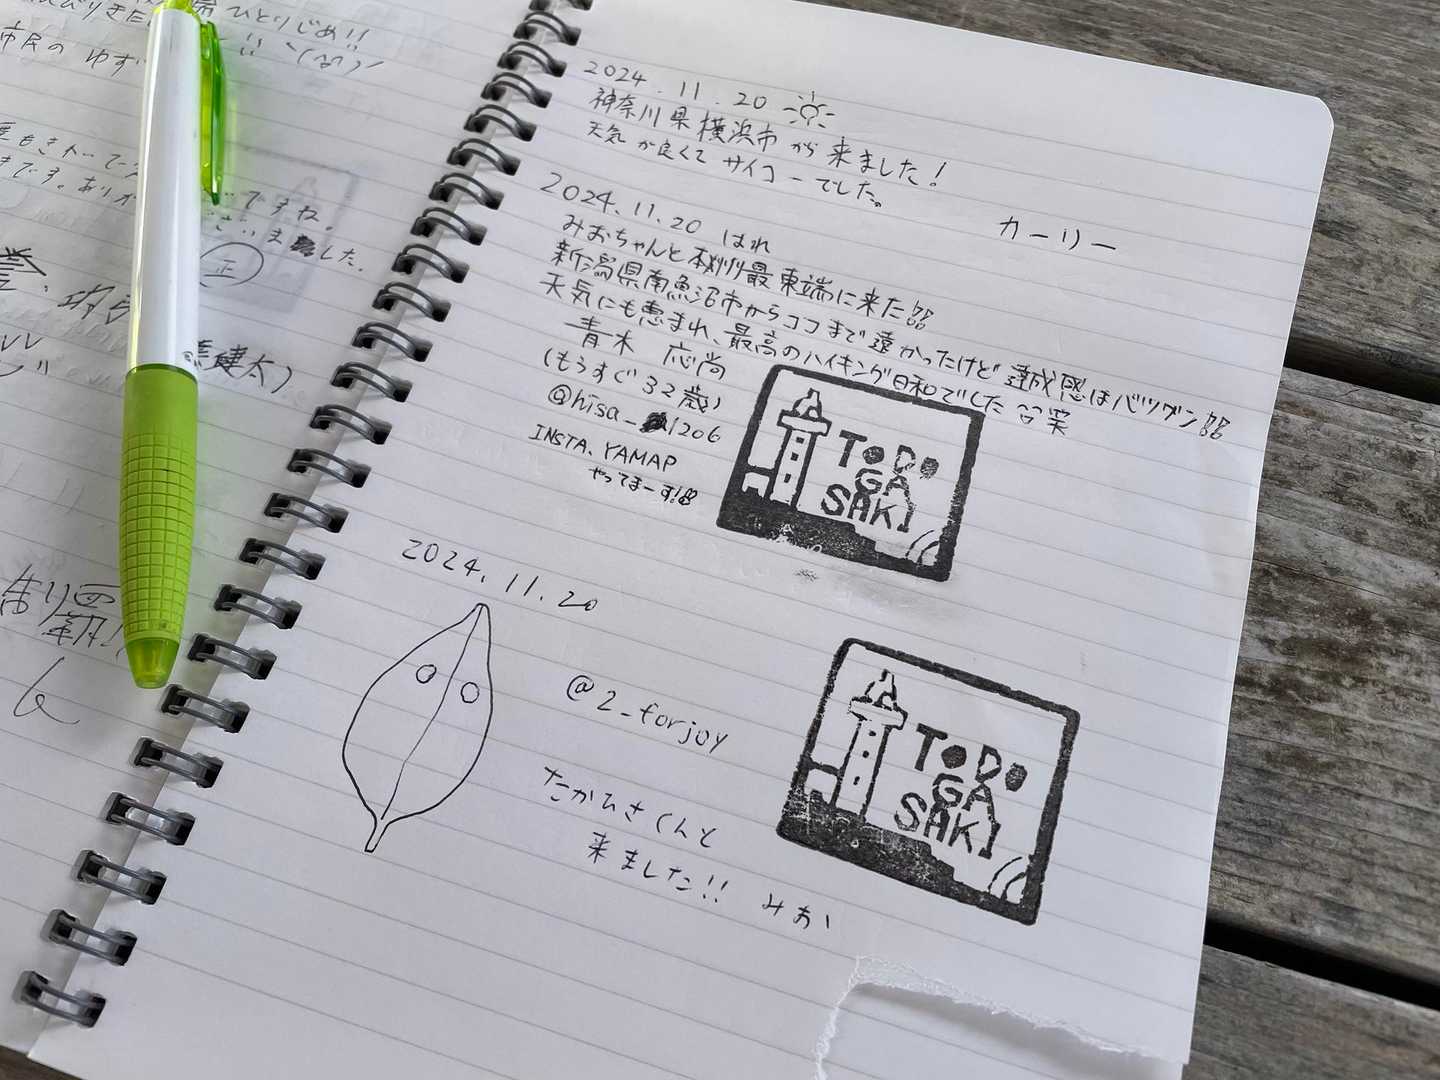 ひとりじめ!!
市民の ゆず
ですね。
した。
正
健太)
2024.11.20
神奈川県横浜市から来ました!
天気が良くてサイコーでした。
カーリー
2024.11.20 はれ
みおちゃんと本州最東端に来た!!
新潟県南魚沼市からココまで遠かったけど達成感はバツグン!!
天気にも恵まれ、最高のハイキング日和でした 笑
青木
(もうすぐ32歳)
@hisa_1206
INSTA、YAMAP
やってまーす!!
TODO
GA
SAKI
2024.11.20
@2_forjoy
たかひさくんと
来ました!! みお
TODO
GA
SAKI